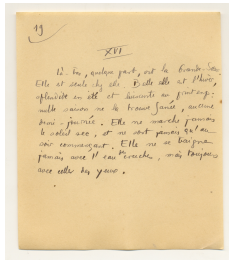 19
XVI
Là-bas, quelque part, est la Grande-
Elle est seule chez elle. Belle elle est l'hiver,
splendide en été et luisante au printemps
nulle saison ne la trouve fanée, aucune
demi-journée. Elle ne marche jamais
le soleil sec, et ne sort jamais qu'au
soir commençant. Elle ne se baigne
jamais avec l'eau cruches, mais toujours
avec celle des yeux.